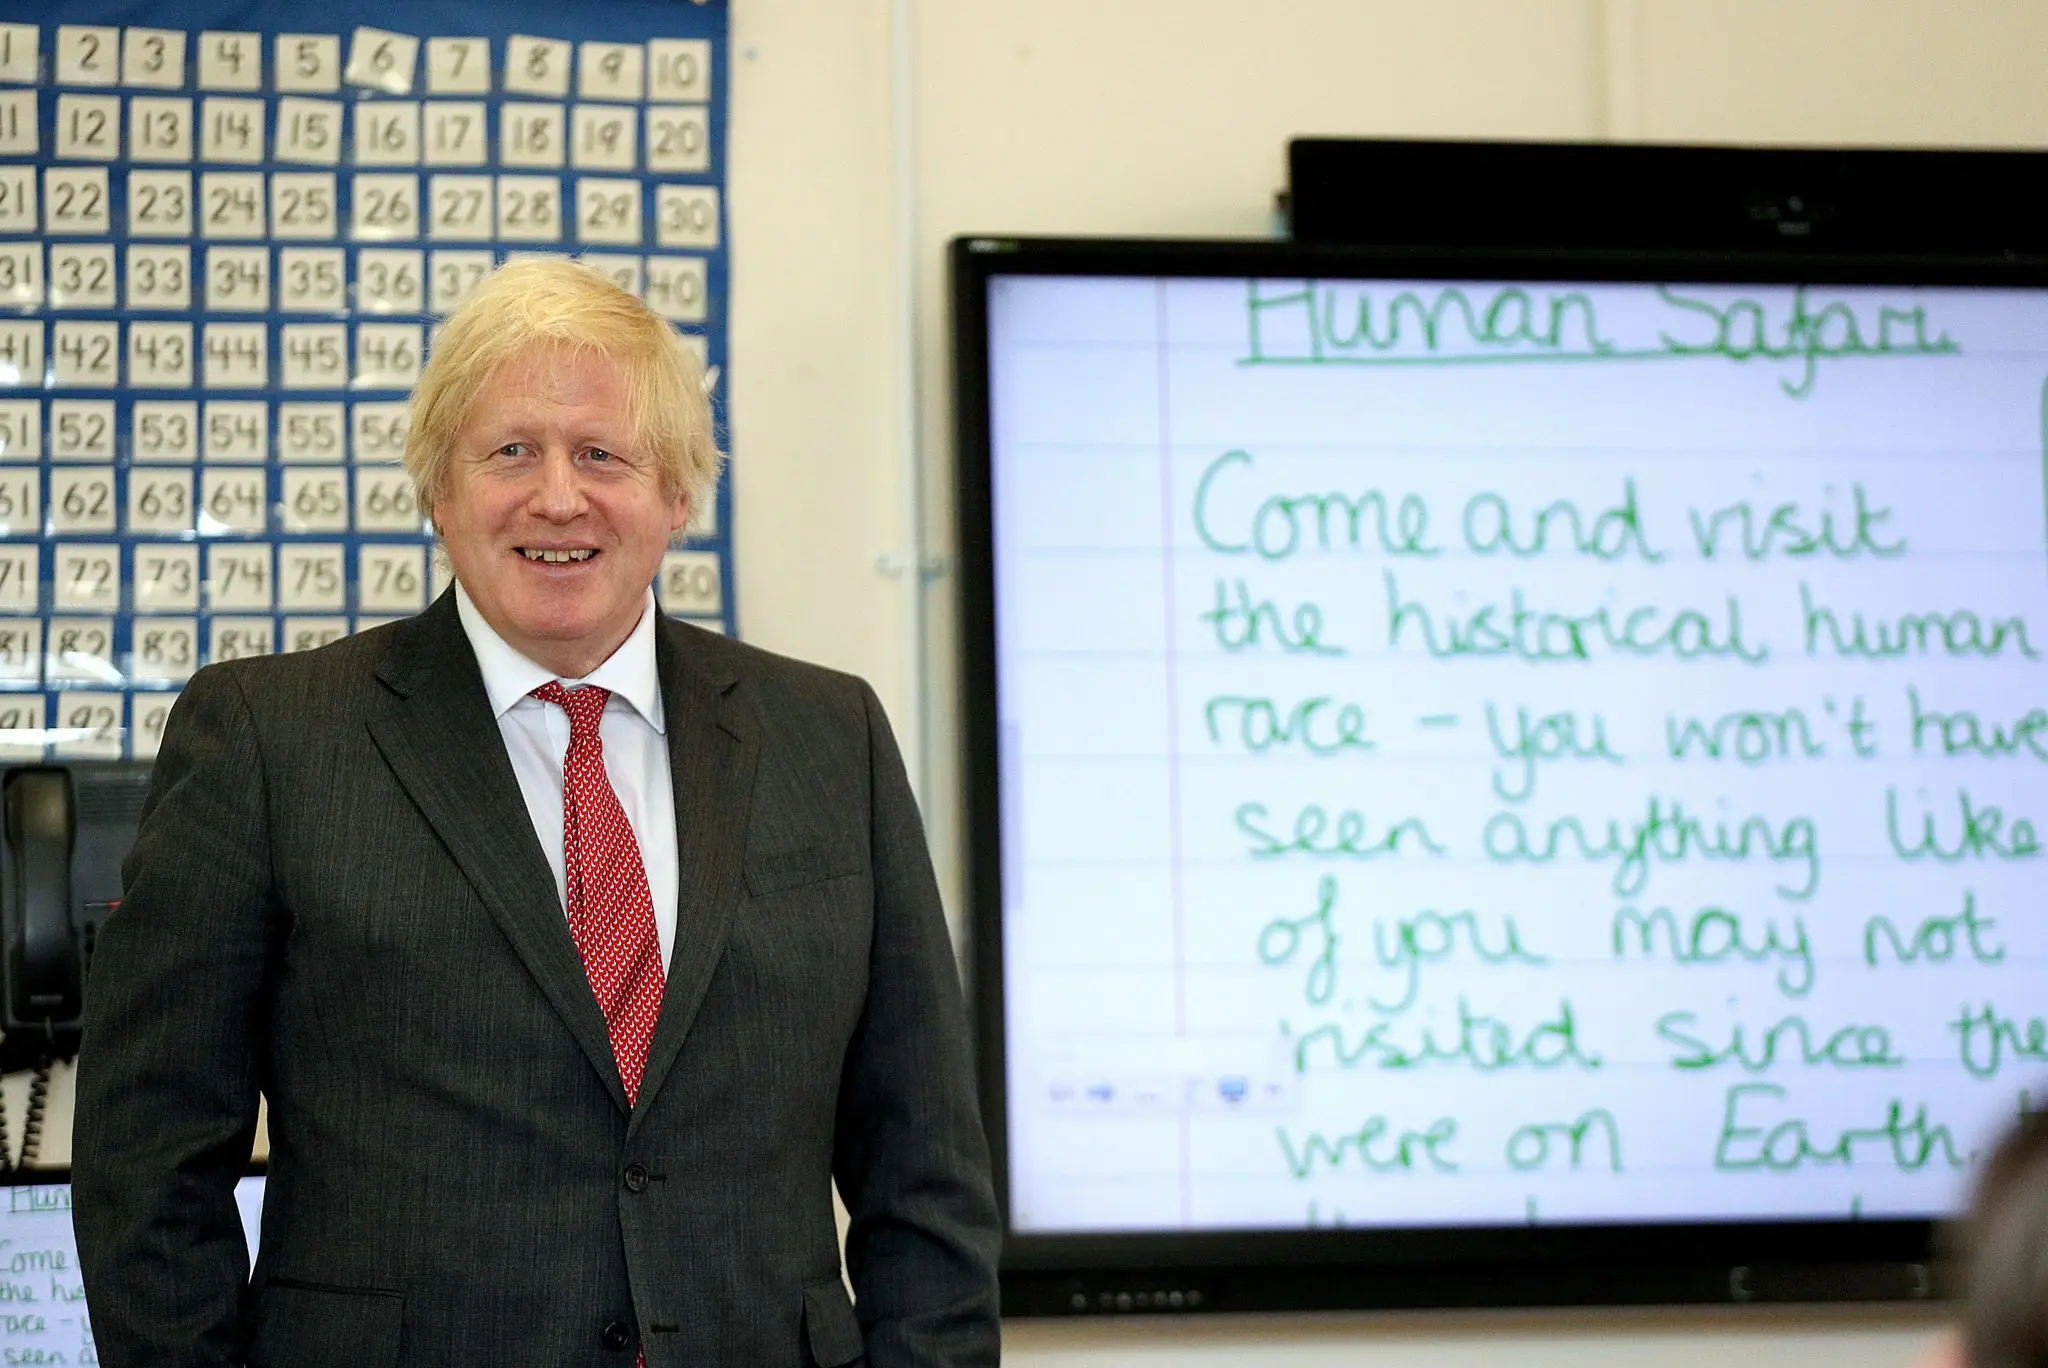 1 2 3 4 5 6 7 8 9 10
11 12 13 14 15 16 17 18 19 20
21 22 23 24 25 26 27 28 29 30
31 32 33 34 35 36 37 40
41 42 43 44 45 46
51 52 53 54 55 56
61 62 63 64 65 66
71 72 73 74 75 76 80
81 82 83 84 85
91 92
Human Safari.
Come and visit
the historical human
race - you won't have
seen anything like
of you may not
visited since the
were on Earth.
Hum
Come
the his
race - y
seen a